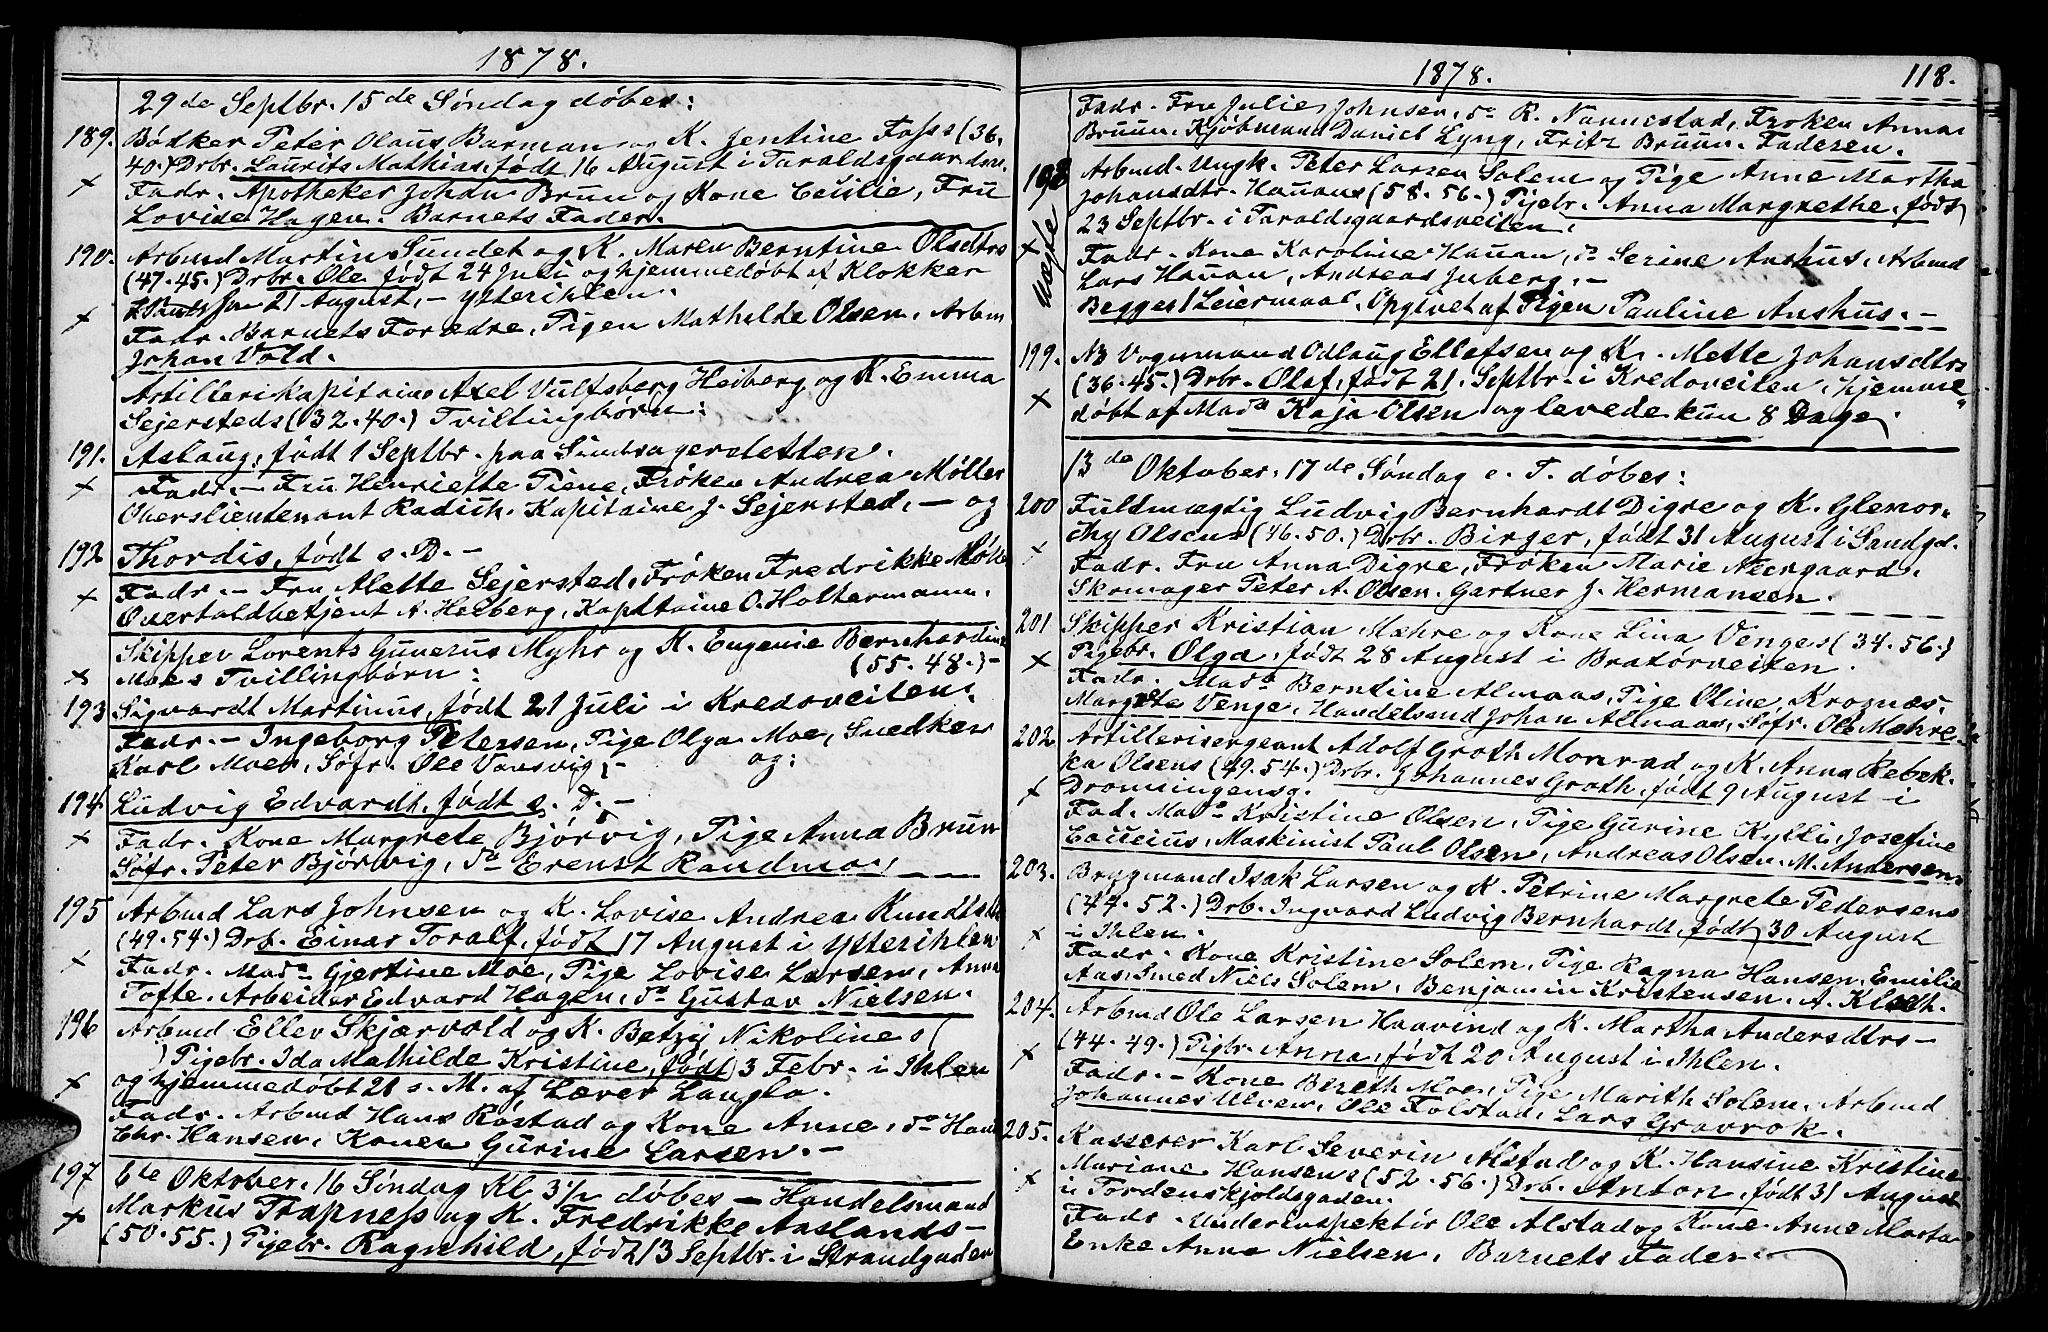 1878.
29de Septbr. 15de Søndag døbes:
189. Bødker Peter Olaus Barman og K. Jentine Foss (36.
40.) Drbr. Laurits Mathias, født 16 August i Taraldsgaardsv.
× Fadr. Apotheker Johan Brun og Kone Cecilie, Fru
Lovise Hagen. Barnets Fader.
190. Arbmd Martin Sundet og K. Maren Berntine Olsdtrs
(47.45.) Drbr. Ole født 24 Juli og hjemmedøbt af Klokker
21 August, - Ytterihlen.
× Fadr. Barnets Forædre, Pigen Mathilde Olsen, Arbm
Johan Vold.
Artillerikapitaine Axel Vultsberg Heiberg og K. Emma
Sejersteds (32.40.) Tvillingbørn:
191. Aslaug, født 1 Septbr. paa Sindsagerslette​n.
× Fadr. - Fru Henriette Piene, Frøken Andrea Møller
Oberslieutenant Radich. Kapitaine J. Sejersted, - og
192 Thordis, født s. D. -
× Fadr. - Fru Alette Sejersted, Frøken Fredrikke Møller
Overtoldbetjent A. Heiberg, Kapitaine O. Holtermann.
Skipper Lorents Gunerus Myhr og K. Eugenie Bernhardine
(55.48.) -
× Moes Tvillingbørn:
193 Sigvardt Martinus, født 21 Juli i Kredsveiten:
Fadr. - Ingeborg Petersen, Pige Olga Moe, Snedker
Karl Moen, Søfr. Ole Vansvig, - og:
194 Ludvig Edvardt, født s. D. -
× Fadr. Kone Margrete Bjørvig, Pige Anna Brun
Søfr. Peter Bjørvig, do Erenst Randmo,
195 Arbmd Lars Johnsen og K. Lovise Andrea Knudtsdtr
(49.54.) Drb. Einar Toralf, født 17 August i Ytterihlen
× Fadr. Mada Gjertine Moe, Pige Lovise Larsen, Anna
Tofte. Arbeider Edvard Hagen, do Gustav Nielsen.
196 Arbmd Ellev Skjærvold og K. Betzy Nikolines (
) Pigebr. Ida Mathilde Kristine, født 3 Febr. i Ihlen
× og hjemmedøbt 21 s. M. af Lærer Langlo.
Fadr. Arbmd Hans Røstad og Kone Anne, do Hans
Chr. Hansen, Konen Gurine Larsen. -
197 6te Oktober. 16 Søndag Kl 3½ døbes - Handelsmand
× Markus Trapness og K. Fredrikke Aaslands -
(50.55.) Pigebr. Ragnhild, født 13 Septbr. i Strandgaden
1878. 118.
Fadr. Fru Julie Johnsen, do R. Nannestad, Frøken Anna
Bruun, Kjøbmand Daniel Lyng, Fritz Bruun. Faderen.
198 Arbmd. Ungk. Peter Larsen Solem og Pige Anne Martha
Johansdtr. Hauans (58.56.) Pigebr. Anna Margrethe, født
23 Septbr. i Taraldsgaardsveiten.
uægte × Fadr. Kone Karoline Hauan, do Serine Aushus, Arbmd
Lars Hauan, Andreas Juberg. -
Begges 1 Leiermaal, Opgivet af Pigen Pauline Aushus. -
199. NB Vognmand Odlaug Ellefsen og K. Mette Johansdtrs
(36.45.) Drbr. Olaf, født 21. Septbr. i Kredsveiten, hjemme„
× døbt af Mada Kaja Olsen og levede kun 8 Dage.
13de Oktober. 17de Søndag e. T. døbes:
200 Fuldmægtig Ludvig Bernhardt Digre og K. Glemor„
thy Olsens (46.50.) Drbr. Birger, født 31 August i Sandgd.
× Fadr. Fru Anna Digre, Frøken Marie Neergaard.
Skomager Peter A. Olsen. Gartner J. Hermansen.
201 Skipper Kristian Mæhre og Kone Lina Venges (34.56.)
× Pigebr. Olga, født 28 August i Bratørveiten.
Fadr. Mada Berntine Almaas, Pige Oline Kromæs.
Margrete Venge, Handelsmd Johan Almaas, Søfr. Ole Mæhre.
202. Artillerisergeant Adolf Groth Monrad og K. Anna Rebek„
ka Olsens (49.54.) Drbr. Johannes Groth, født 9 August i
× Dronningensg.
Fad. Mada Kristine Olsen, Pige Gurine Kylli, Josefine
Coucius, Maskinist Paul Olsen, Andreas Olsen, M. Andersen.
203. Brygmand Isak Larsen og K. Petrine Margrete Pedersens
(44.52.) Drb. Ingvard Ludvig Bernhardt, født 30 August
× i Ihlen.
Fadr. Kone Kristine Solem, Pige Ragna Hansen, Emilie
Aas. Smed Niels Solem, Benjamin Kristensen, A. Kleth.
204. Arbmd Ole Larsen Haavind og K. Martha Andersdtrs -
× (44.49.) Pigbr. Anna, født 20 August i Ihlen.
Fadr. - Kone Bereth Moe, Pige Marith Solem. Arbmd
Johannes Ulven, Ole Folstad, Lars Gravrok.
205. Kasserer Karl Severin Alstad og K. Hansine Kristine
× Mariane Hansens (52.56.) Drb. Anton, født 31 August
i Tordenskjoldsgaden.
Fadr. Underinspektør Ole Alstad og Kone Anne Marta
Enke Anne Nielsen. Barnets Fader -